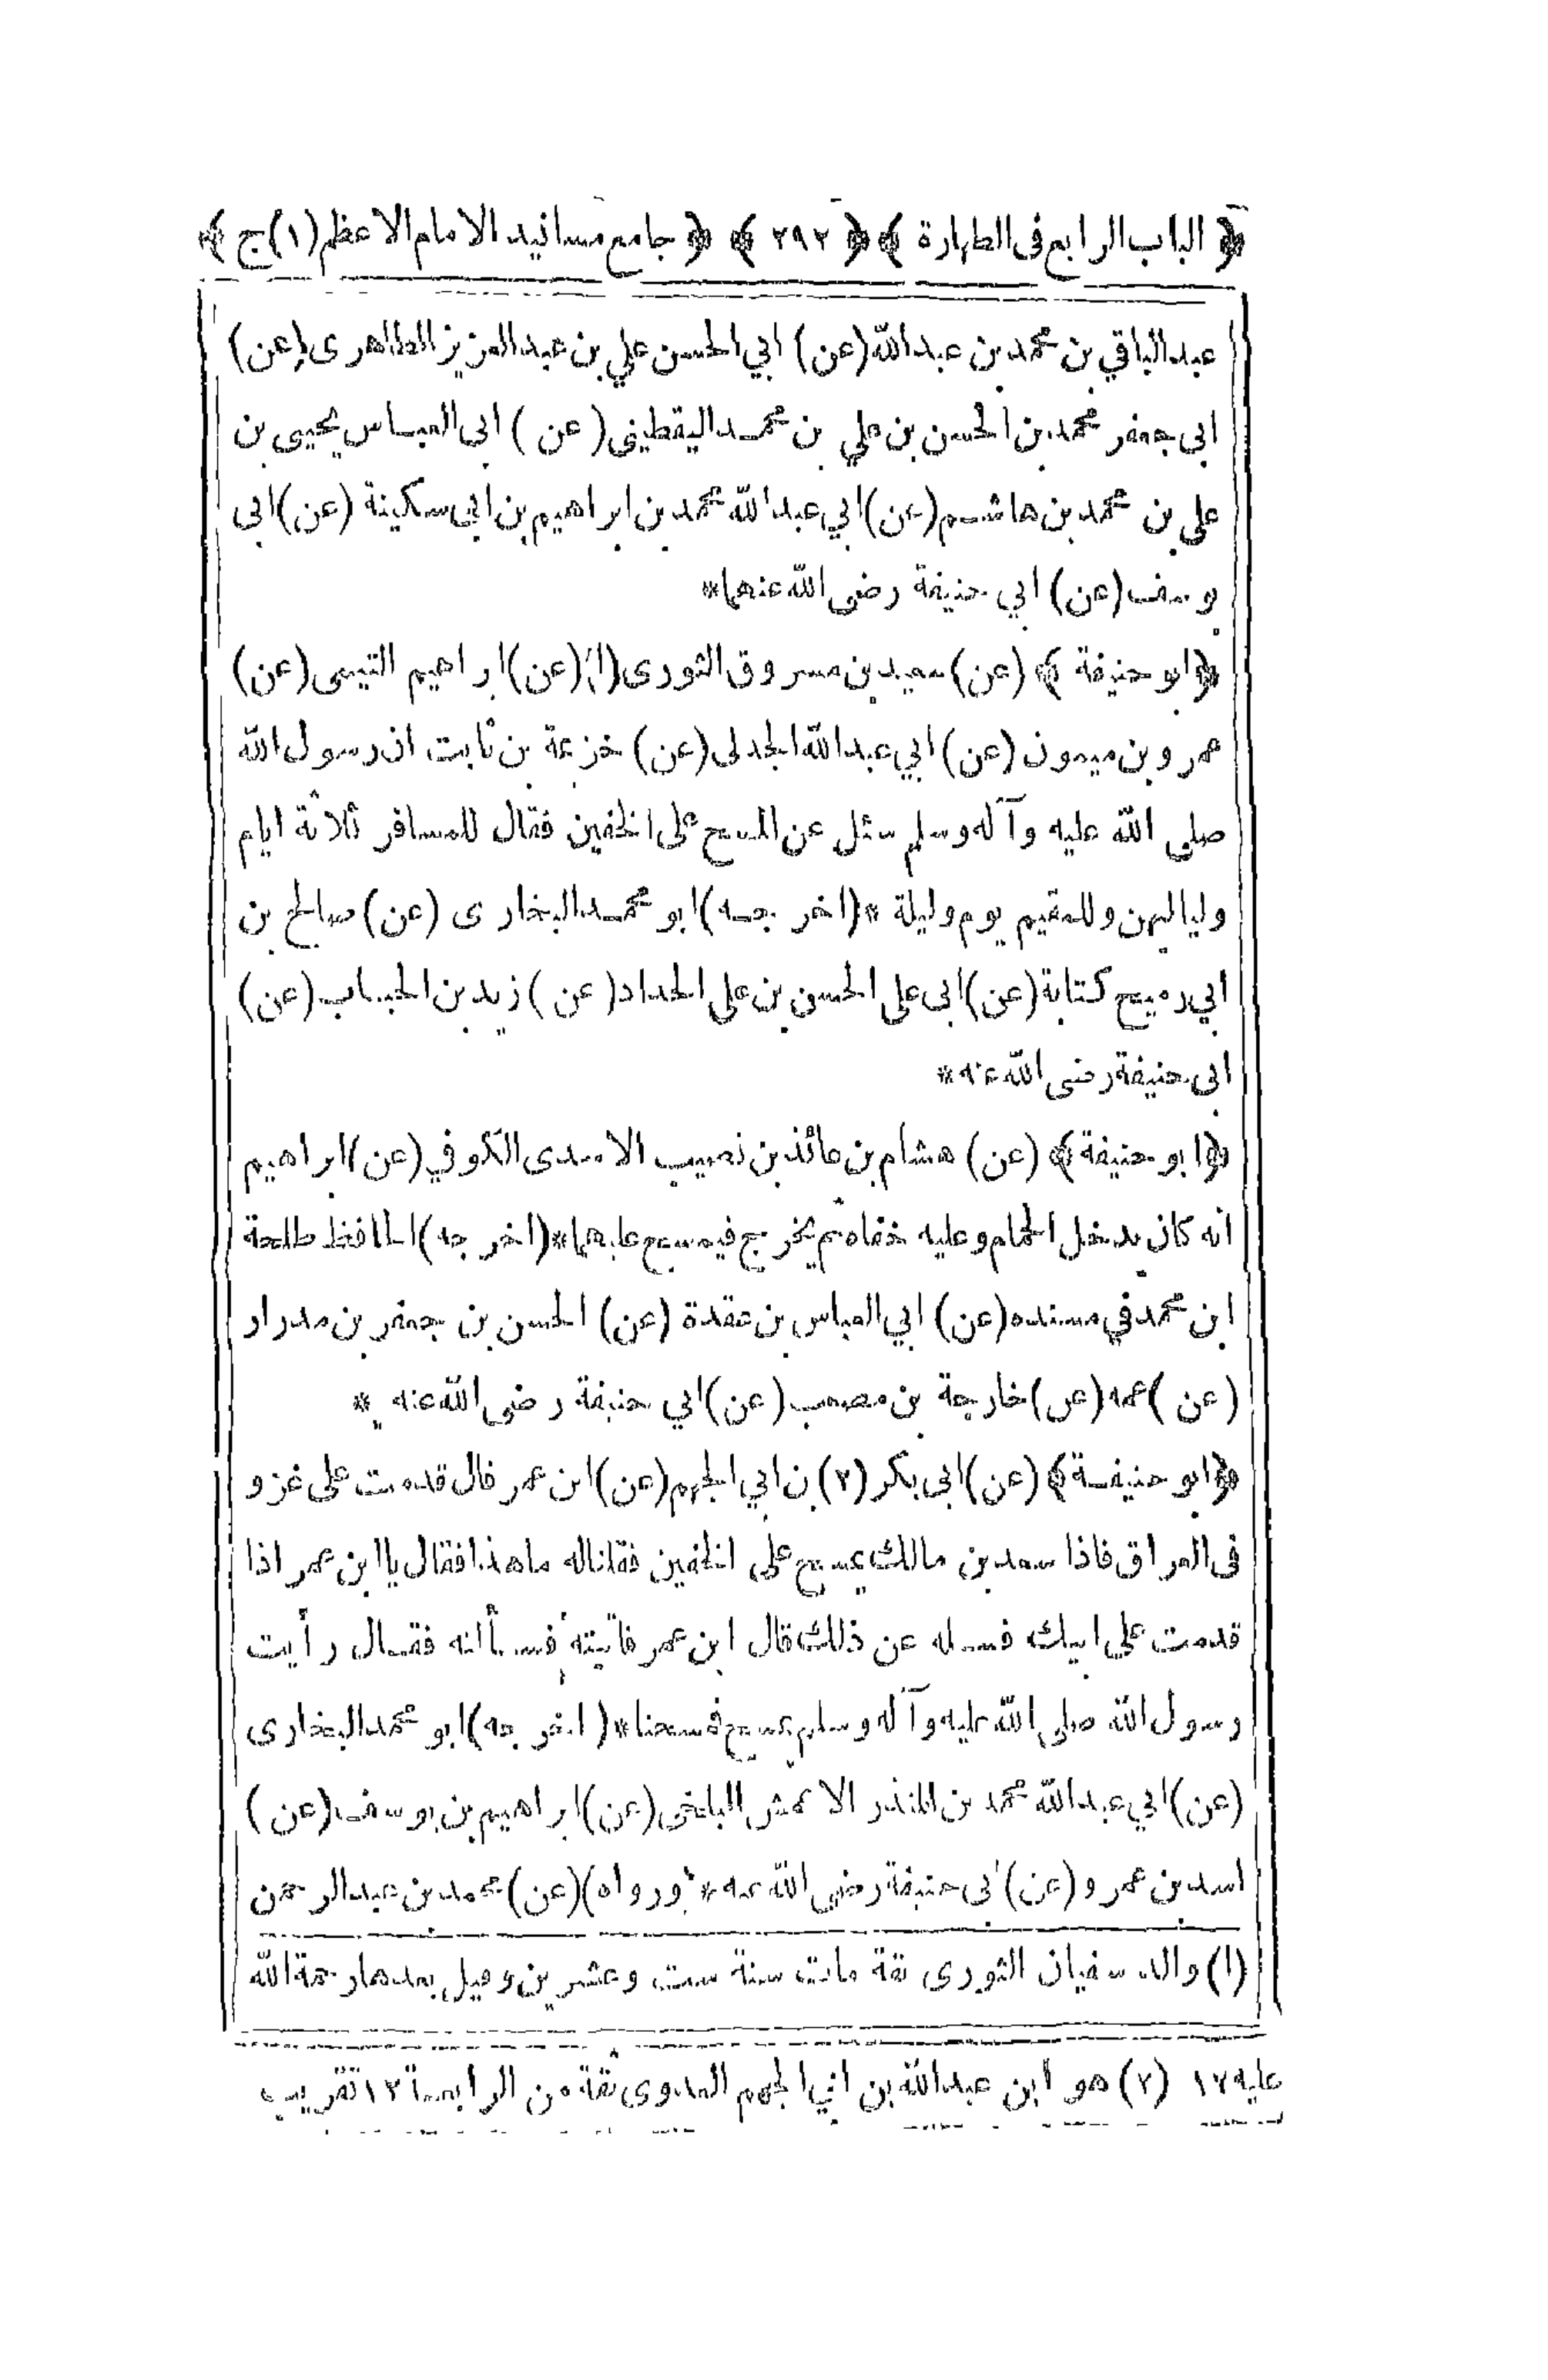 ﴿ الباب الرابع فى الطهارة ﴾ ﴿ ٢٩٢ ﴾ ﴿ جامع مسانيد الامام الاعظم (١) ج ﴾
عبد الباقي بن محمد بن عبد الله (عن) ابي الحسن علي بن عبد العزيز الطاهرى (عن)
ابى جعفر محمد بن الحسن بن علي بن محمد اليقطينى (عن) ابى العباس يحيى بن
على بن محمد بن هاشم (عن) ابي عبد الله محمد بن ابراهيم بن ابى سكينة (عن) ابى
يوسف (عن) ابي حنيفة رضى الله عنهما *
﴿ ابو حنيفة ﴾ (عن) سعيد بن مسروق الثورى (١) (عن) ابراهيم التيمى (عن)
عمرو بن ميمون (عن) ابي عبد الله الجدلى (عن) خزيمة بن ثابت ان رسول الله
صلى الله عليه وآله وسلم سئل عن المسح على الخفين فقال للمسافر ثلاثة ايام
ولياليهن وللمقيم يوم وليلة * (اخرجه) ابو محمد البخارى (عن) صالح بن
ابي رميح كتابة (عن) ابى على الحسن بن على الحداد (عن) زيد بن الحباب (عن)
ابى حنيفة رضى الله عنه *
﴿ ابو حنيفة ﴾ (عن) هشام بن عائذ بن نصيب الاسدى الكوفي (عن) ابراهيم
انه كان يدخل الحمام وعليه خفاه ثم يخرج فيمسح عليهما * (اخرجه) الحافظ طلحة
ابن محمد في مسنده (عن) ابي العباس بن عقدة (عن) الحسن بن جعفر بن مدرار
(عن) عمه (عن) خارجة بن مصعب (عن) ابي حنيفة رضى الله عنه *
﴿ ابو حنيفة ﴾ (عن) ابى بكر (٢) بن ابي الجهم (عن) ابن عمر قال قدمت على غزو
فى العراق فاذا سعد بن مالك يمسح على الخفين فقلنا له ما هذا فقال يا ابن عمر اذا
قدمت علي ابيك فسله عن ذلك قال ابن عمر فاتيته فسألته فقال رأيت
رسول الله صلى الله عليه وآله وسلم يمسح فمسحنا * (اخرجه) ابو محمد البخارى
(عن) ابي عبد الله محمد بن المنذر الاعمش البلخى (عن) ابراهيم بن يوسف (عن)
اسد بن عمرو (عن) ابى حنيفة رضى الله عنه * (ورواه) (عن) محمد بن عبد الرحمن
(١) والد سفيان الثورى ثقة مات سنة ست وعشرين وقيل بعدها رحمة الله
عليه ١٢ (٢) هو ابن عبد الله بن ابي الجهم العدوى ثقة من الرابعة ١٢ تقريب